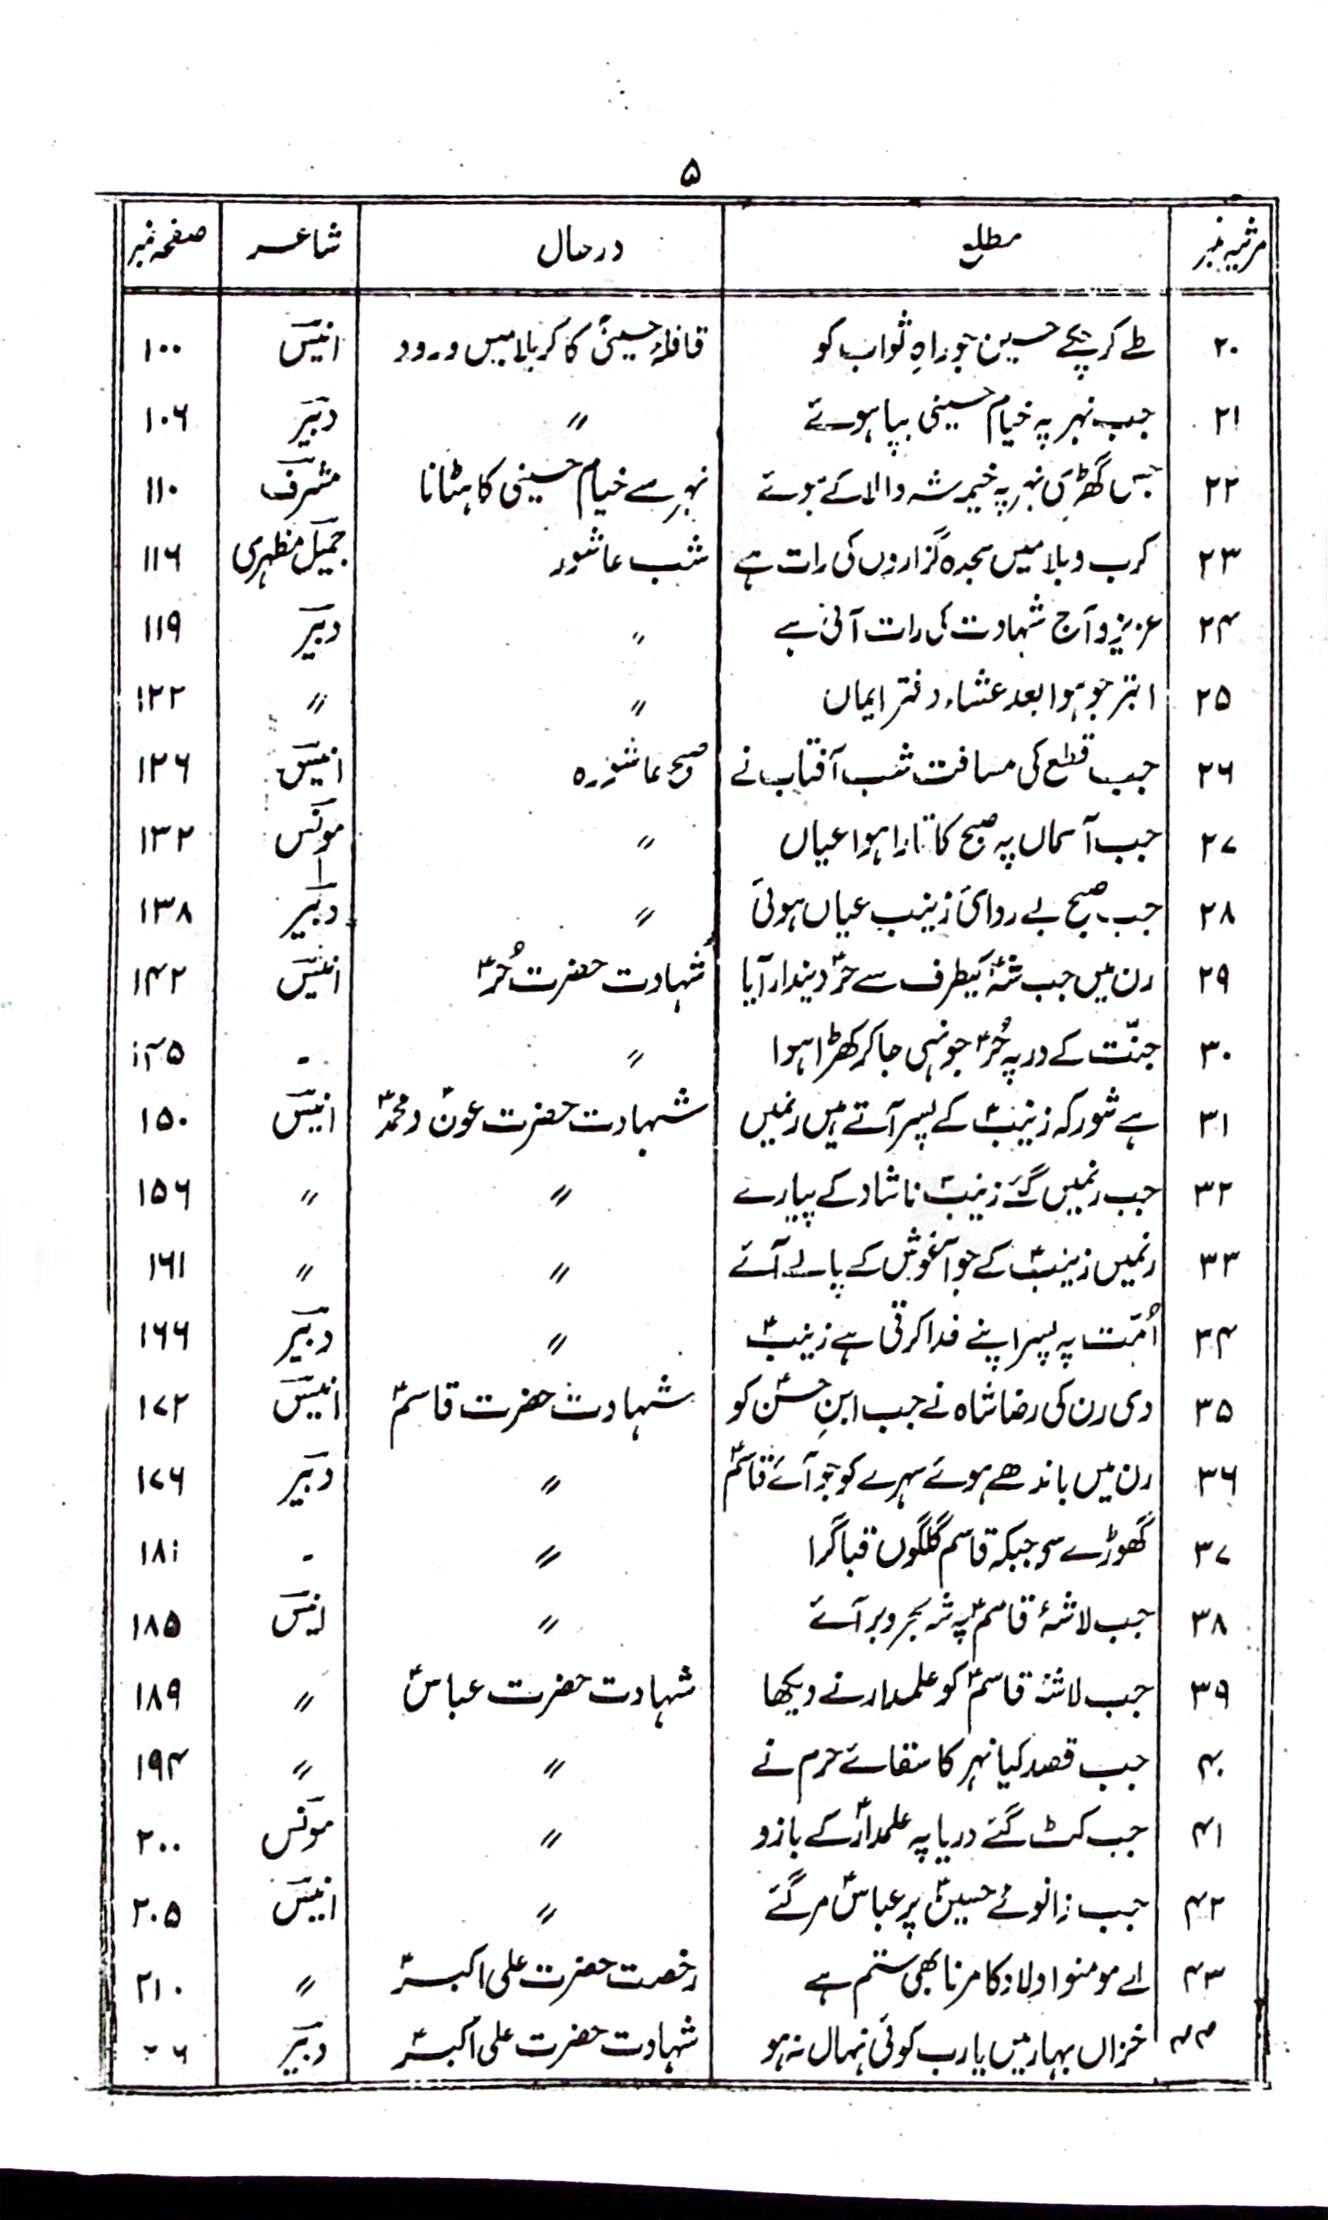 ۵
مرثیہ نمبر مطلع درحال شاعر صفحہ نمبر
۲۰ طے کرچکے حسین جو راہِ ثواب کو قافلۂ حسینیؑ کا کربلا میں ورود انیسؔ ۱۰۰
۲۱ جب نہر پہ خیام حسینی بپا ہوئے 〃 دبیرؔ ۱۰۶
۲۲ جس گھڑی نہر پہ خیمہ شہ والا کے ہوئے نہر سے خیام حسینی کا ہٹانا مشرفؔ ۱۱۰
۲۳ کرب و بلا میں سجدہ گزاروں کی رات ہے شب عاشور جمیلؔ مظہری ۱۱۶
۲۴ عزیزو آج شہادت کی رات آئی ہے 〃 دبیرؔ ۱۱۹
۲۵ ابتر جو ہوا بعد عشاء دفتر ایماں 〃 〃 ۱۲۲
۲۶ جب قطع کی مسافت شب آفتاب نے صبح عاشورہ انیسؔ ۱۲۶
۲۷ جب آسماں پہ صبح کا تارا ہوا عیاں 〃 مونسؔ ۱۳۲
۲۸ جب صبح بے ردائ زینب عیاں ہوئی 〃 دبیرؔ ۱۳۸
۲۹ رن میں جب شہؑ کیطرف سے حرؑ دیندار آیا شہادت حضرت حُرؑ انیسؔ ۱۴۲
۳۰ جنّت کے در پہ حُرؑ جونہی جاکر کھڑا ہوا 〃 - ۱۴۵
۳۱ ہے شور کہ زینبؑ کے پسر آتے ہیں رنمیں شہادت حضرت عونؑ و محمدؑ انیسؔ ۱۵۰
۳۲ جب رنمیں گئے زینبؑ ناشاد کے پیارے 〃 〃 ۱۵۶
۳۳ رنمیں زینبؑ کے جو آغوش کے پالے آئے 〃 〃 ۱۶۱
۳۴ اُمّت پہ پسر اپنے فدا کرتی ہے زینبؑ 〃 دبیرؔ ۱۶۶
۳۵ دی رن کی رضا شاہ نے جب ابنِ حسنؑ کو شہادت حضرت قاسمؑ انیسؔ ۱۷۲
۳۶ رن میں باندھے ہوئے سہرے کو جو آئے قاسمؑ 〃 دبیرؔ ۱۷۶
۳۷ گھوڑے سو جبکہ قاسم گلگوں قبا گرا 〃 - ۱۸۱
۳۸ جب لاشۂ قاسمؑ پہ شہ بحروبر آئے 〃 انیسؔ ۱۸۵
۳۹ جب لاشۂ قاسمؑ کو علمدار نے دیکھا شہادت حضرت عباسؑ 〃 ۱۸۹
۴۰ جب قصد کیا نہر کا سقائے حرم نے 〃 〃 ۱۹۴
۴۱ جب کٹ گئے دریا پہ علمدارؑ کے بازو 〃 مونسؔ ۲۰۰
۴۲ جب زانوئے حسینؑ پر عباسؑ مر گئے 〃 انیسؔ ۲۰۵
۴۳ اے مومنو اولاد کا مرنا بھی ستم ہے رخصت حضرت علی اکبرؑ 〃 ۲۱۰
۴۴ خزاں بہار میں یارب کوئی نہال نہ ہو شہادت حضرت علی اکبرؑ دبیرؔ